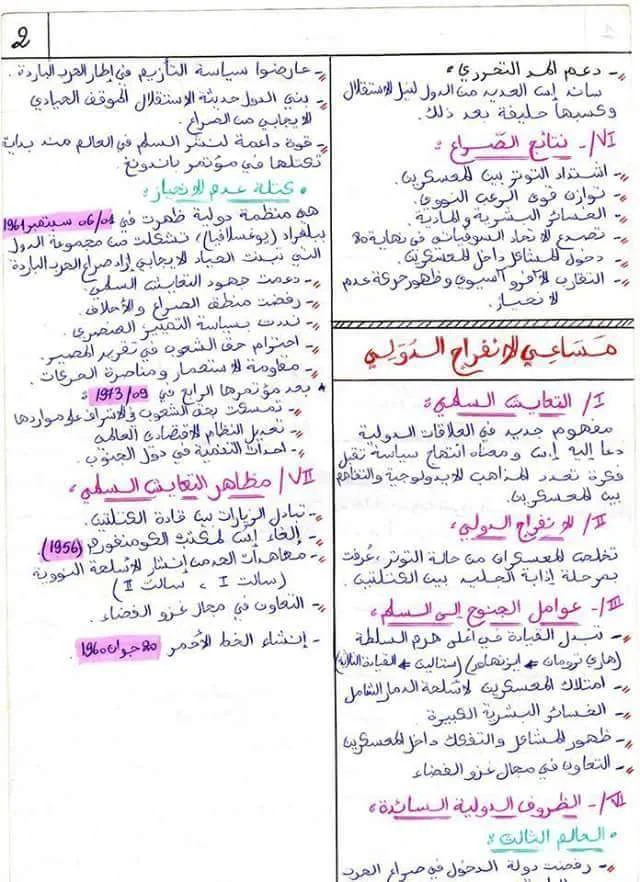 2
- دعم المد التحرري:
ساند إس العديد من الدول لنيل الاستقلال
وكسبها حليفة بعد ذلك.
VI/- نتائج الصراع:
- اشتداد التوتر بين المعسكرين.
- توازن قوى الرعب النووي.
- الخسائر البشرية والمادية.
- تصدع الاتحاد السوفياتي في نهاية 80
- دخول المشاكل داخل المعسكرين.
- التقارب الآفرو آسيوي وظهور حركة عدم
الانحياز.
مساعي الانفراج الدولي
I/ التعايش السلمي:
مفهوم جديد في العلاقات الدولية
دعا إليه إ.س ومعناه انتهاج سياسة تقبل
فكرة تعدد المذاهب الايديولوجية والتفاهم
بين المعسكرين.
II/ الانفراج الدولي:
تخلص المعسكران من حالة التوتر، عُرفت
بمرحلة إذابة الجليد بين الكتلتين.
III/- عوامل الجنوح إلى السلم:
- تبدل القيادة في أعلى هرم السلطة
(هاري ترومان ← ايزنهاور) (ستالين ← القيادة الثلاثية)
- امتلاك المعسكرين لأسلحة الدمار الشامل
- الخسائر البشرية الكبيرة
- ظهور المشاكل والتفكك داخل المعسكرين
- التعاون في مجال غزو الفضاء
VI/- الظروف الدولية السائدة:
• العالم الثالث:
- رفضت دولة الدخول في صراع الحرب
- عارضوا سياسة التأزيم في إطار الحرب الباردة.
- بني الدول حديثة الاستقلال الموقف الحيادي
الايجابي من الصراع.
- قوة داعمة لنشر السلم في العالم منذ بداية
تكتلها في مؤتمر باندونغ.
• كتلة عدم الانحياز:
هي منظمة دولية ظهرت في 06/01 سبتمبر 1961
ببلغراد (يوغسلافيا)، تشكلت من مجموعة الدول
التي تبنت الحياد الايجابي إزاء صراع الحرب الباردة
- دعمت جهود التعايش السلمي.
- رفضت منطق الصراع والأحلاف.
- نددت بسياسة التمييز العنصري.
- احترام حق الشعوب في تقرير المصير.
- مقاومة الاستعمار ومناصرة الحركات.
* بعد مؤتمرها الرابع في 1973/09:
- تمسكت بحق الشعوب في الإشراف على مواردها
- تعديل النظام الاقتصادي العالمي
- احداث التنمية في دول الجنوب.
VII/ مظاهر التعايش السلمي:
- تبادل الزيارات بين قادة الكتلتين.
- إلغاء إس لمكتب الكومنفورم (1956).
- معاهدات الحد من إنتشار الأسلحة النووية
(سالت I، سالت II)
- التعاون في مجال غزو الفضاء.
- إنشاء الخط الأحمر 20 جوان 1960.